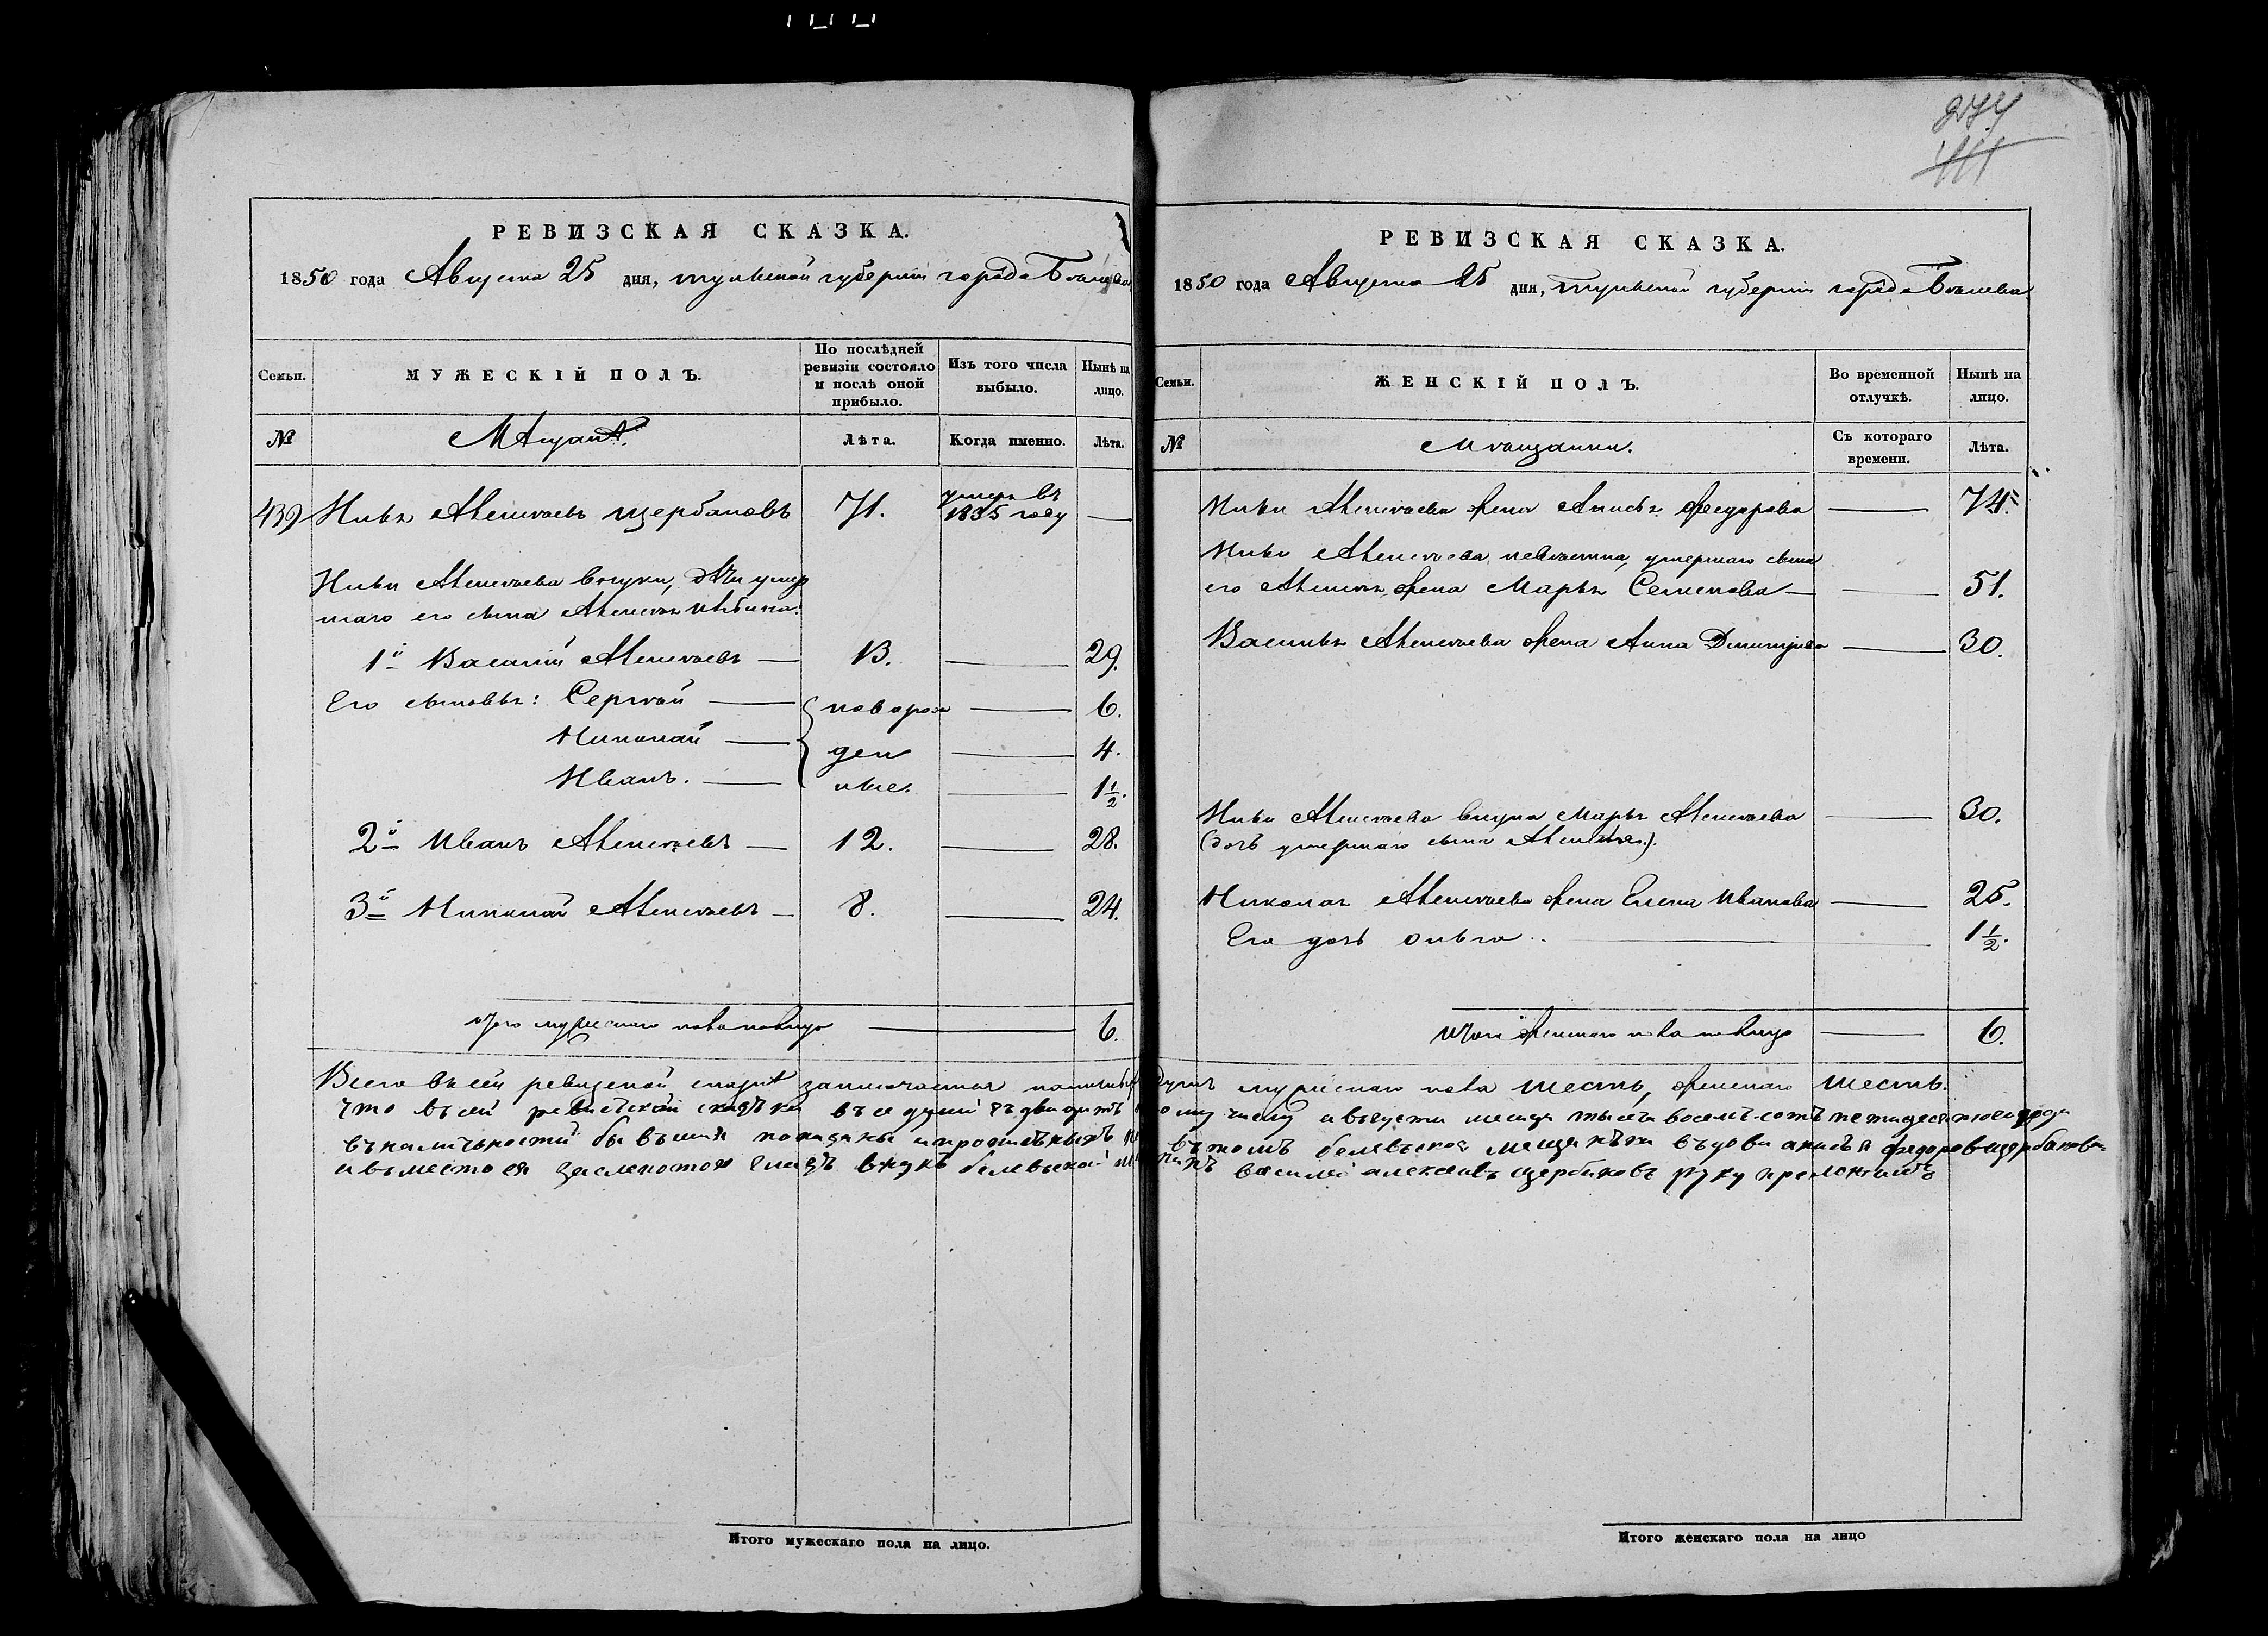 274
111
РЕВИЗСКАЯ СКАЗКА.
1850 года Августа 25 дня, тульской губернии города Бѣлева
Семьи.
МУЖЕСКІЙ ПОЛЪ.
По послѣдней ревизіи состояло и послѣ оной прибыло.
Изъ того числа выбыло.
Нынѣ на лицо.
№
Мѣщанѣ.
Лѣта.
Когда именно.
Лѣта.
439 Илья Алексѣевъ щербаковъ 71. умеръ въ 1835 году —
Ильи Алексѣева внуки, дѣти умер
шаго его сына Алексѣя
1й Василій Алексѣевъ — 13. — 29.
Его сыновья: Сергѣй — новорож — 6.
Николай — ден — 4.
Иванъ. — ные. — 1 1/2.
2й Иванъ Алексѣевъ — 12. — 28.
3й Николай Алексѣевъ — 8. — 24.
Итого мужескаго пола налицо — 6.
РЕВИЗСКАЯ СКАЗКА.
1850 года Августа 25 дня, Тульской губерніи города Бѣлева
Семьи.
ЖЕНСКІЙ ПОЛЪ.
Во временной отлучкѣ.
Нынѣ на лицо.
№
Мѣщанки.
Съ котораго времени.
Лѣта.
Ильи Алексѣева жена Анисья Федорова — 74.
Ильи Алексѣева невѣстка, умершаго сына
его Алексѣя жена Марья Семенова — 51.
Василья Алексѣева жена Анна Дмитріева — 30.
Ильи Алексѣева внука Марья Алексѣева — 30.
(дочь умершаго сына Алексѣя).
Николая Алексѣева жена Елена Иванова — 25.
Его дочь Ольга — 1 1/2.
Итого женскаго пола налицо — 6.
Всего въ сей ревизской сказкѣ заключается душъ мужескаго пола шесть, женскаго шесть.
что въ сей ревиской скаске въсе души къ двадцать числу августа месица тысеча восемъ сотъ петидесятого года
въналичьности бывъшия показаны въ томъ белевъская мещанъка въдова анисья федорова щербакова
а въместо ея заслепотою глазъ внукъ белевъской василей алексевъ щербаковъ руку приложилъ
Итого мужескаго пола на лицо.
Итого женскаго пола на лицо